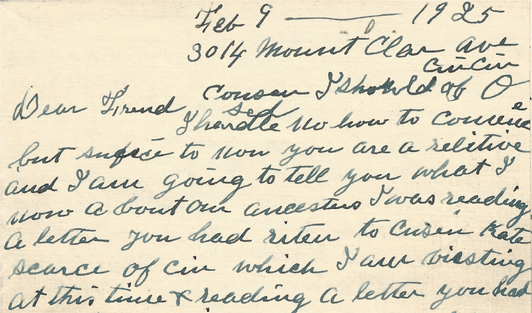 Feb 9 — 1925
3014 Mount Clar Ave
Cincin
Dear Frend, Consen I should of O
sed
I hardle no how to comence
but sufice to non you are a relitive
and I am going to tell you what I
now a bout our ancestors I was reading
a letter you had riten to Cusin Kate
scarce of cin which I am vissting
at this time & reading a letter you had